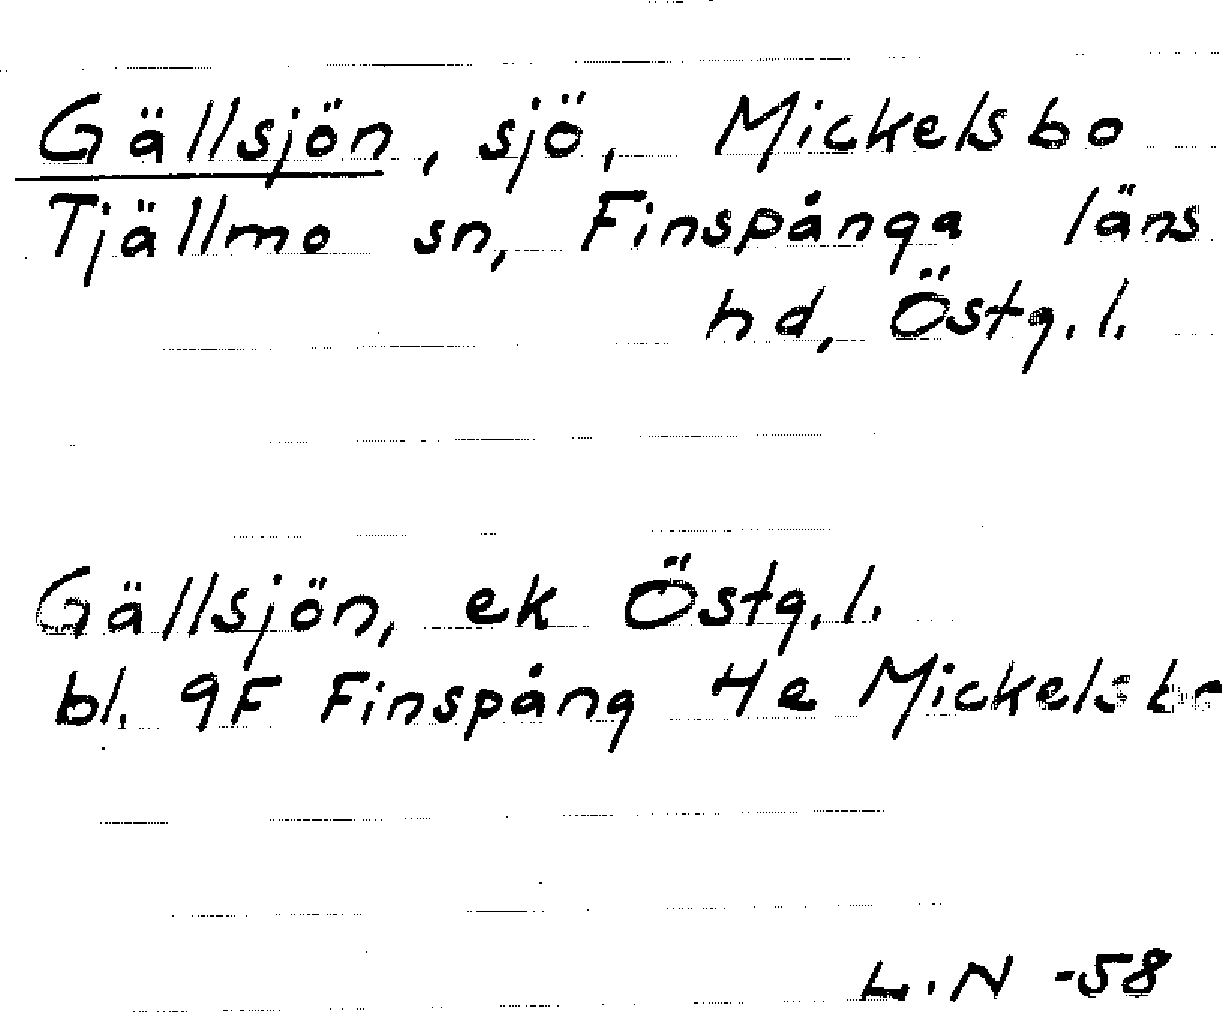 Gällsjön, sjö, Mickelsbo
Tjällmo sn, Finspånga läns
hd, Östg.l.
Gällsjön, ek Östg.l.
bl. 9F Finspång 4e
L.N -58